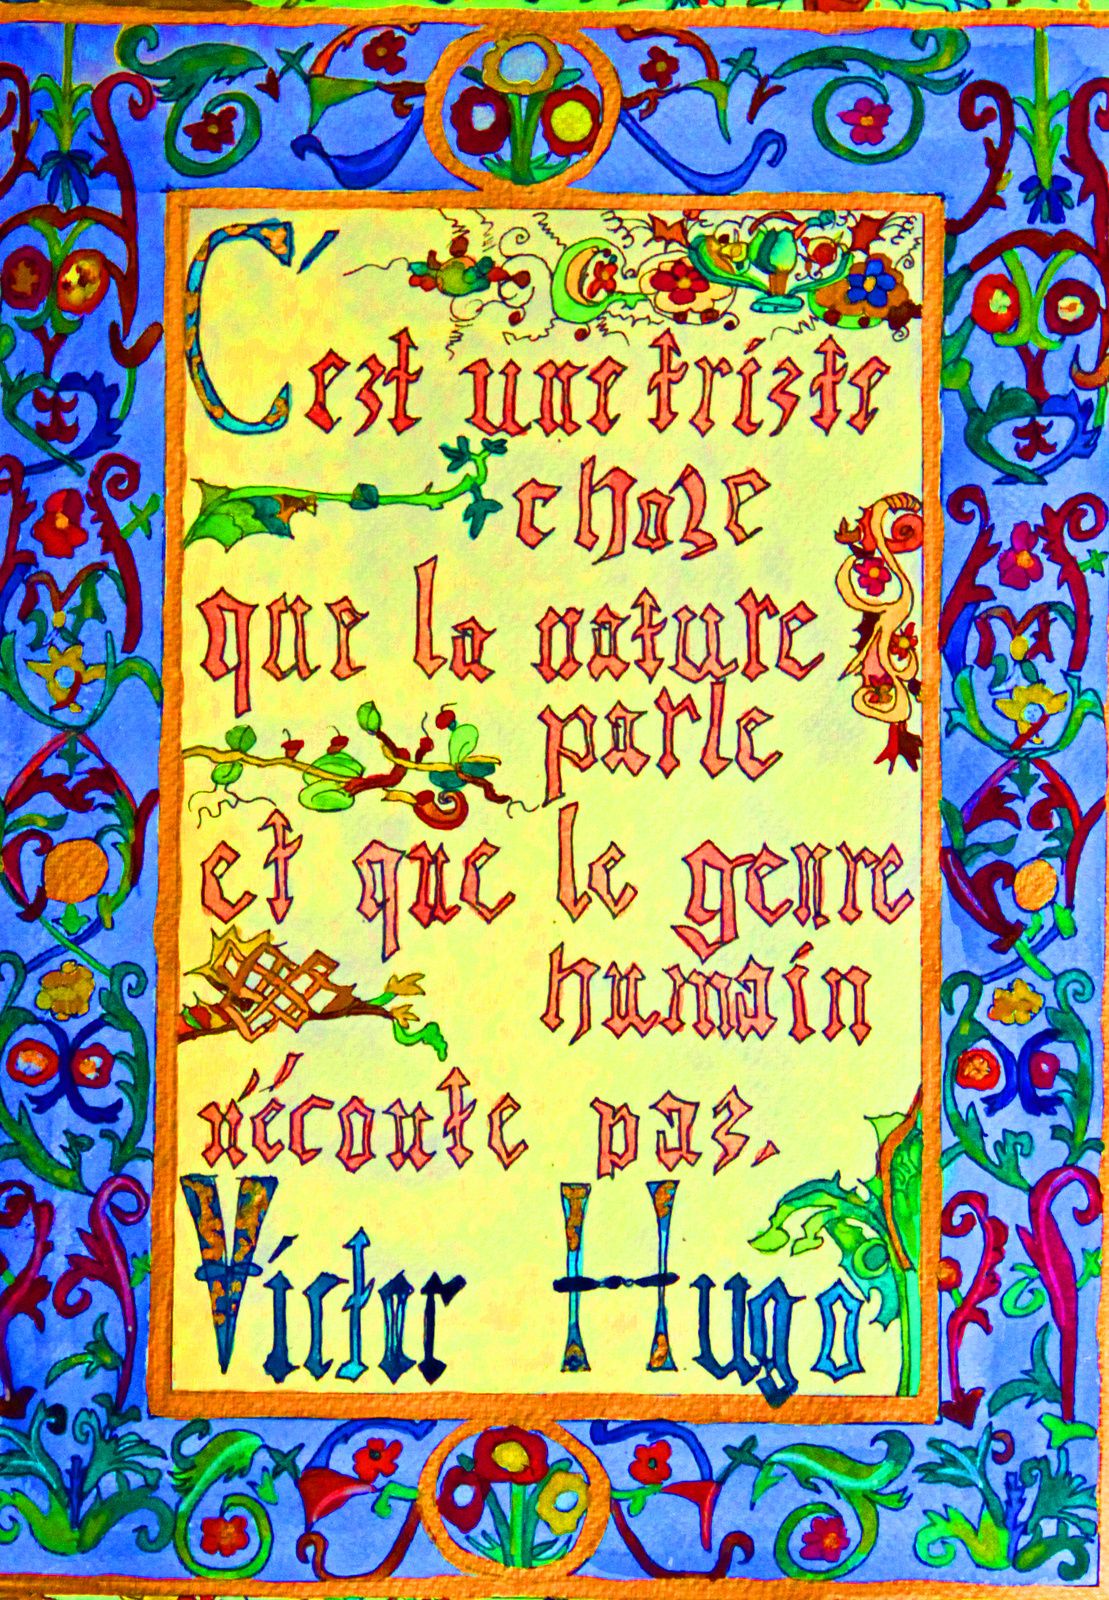 C'est une triste
chose
que la nature
parle
et que le genre
humain
n'écoute pas.
Victor Hugo